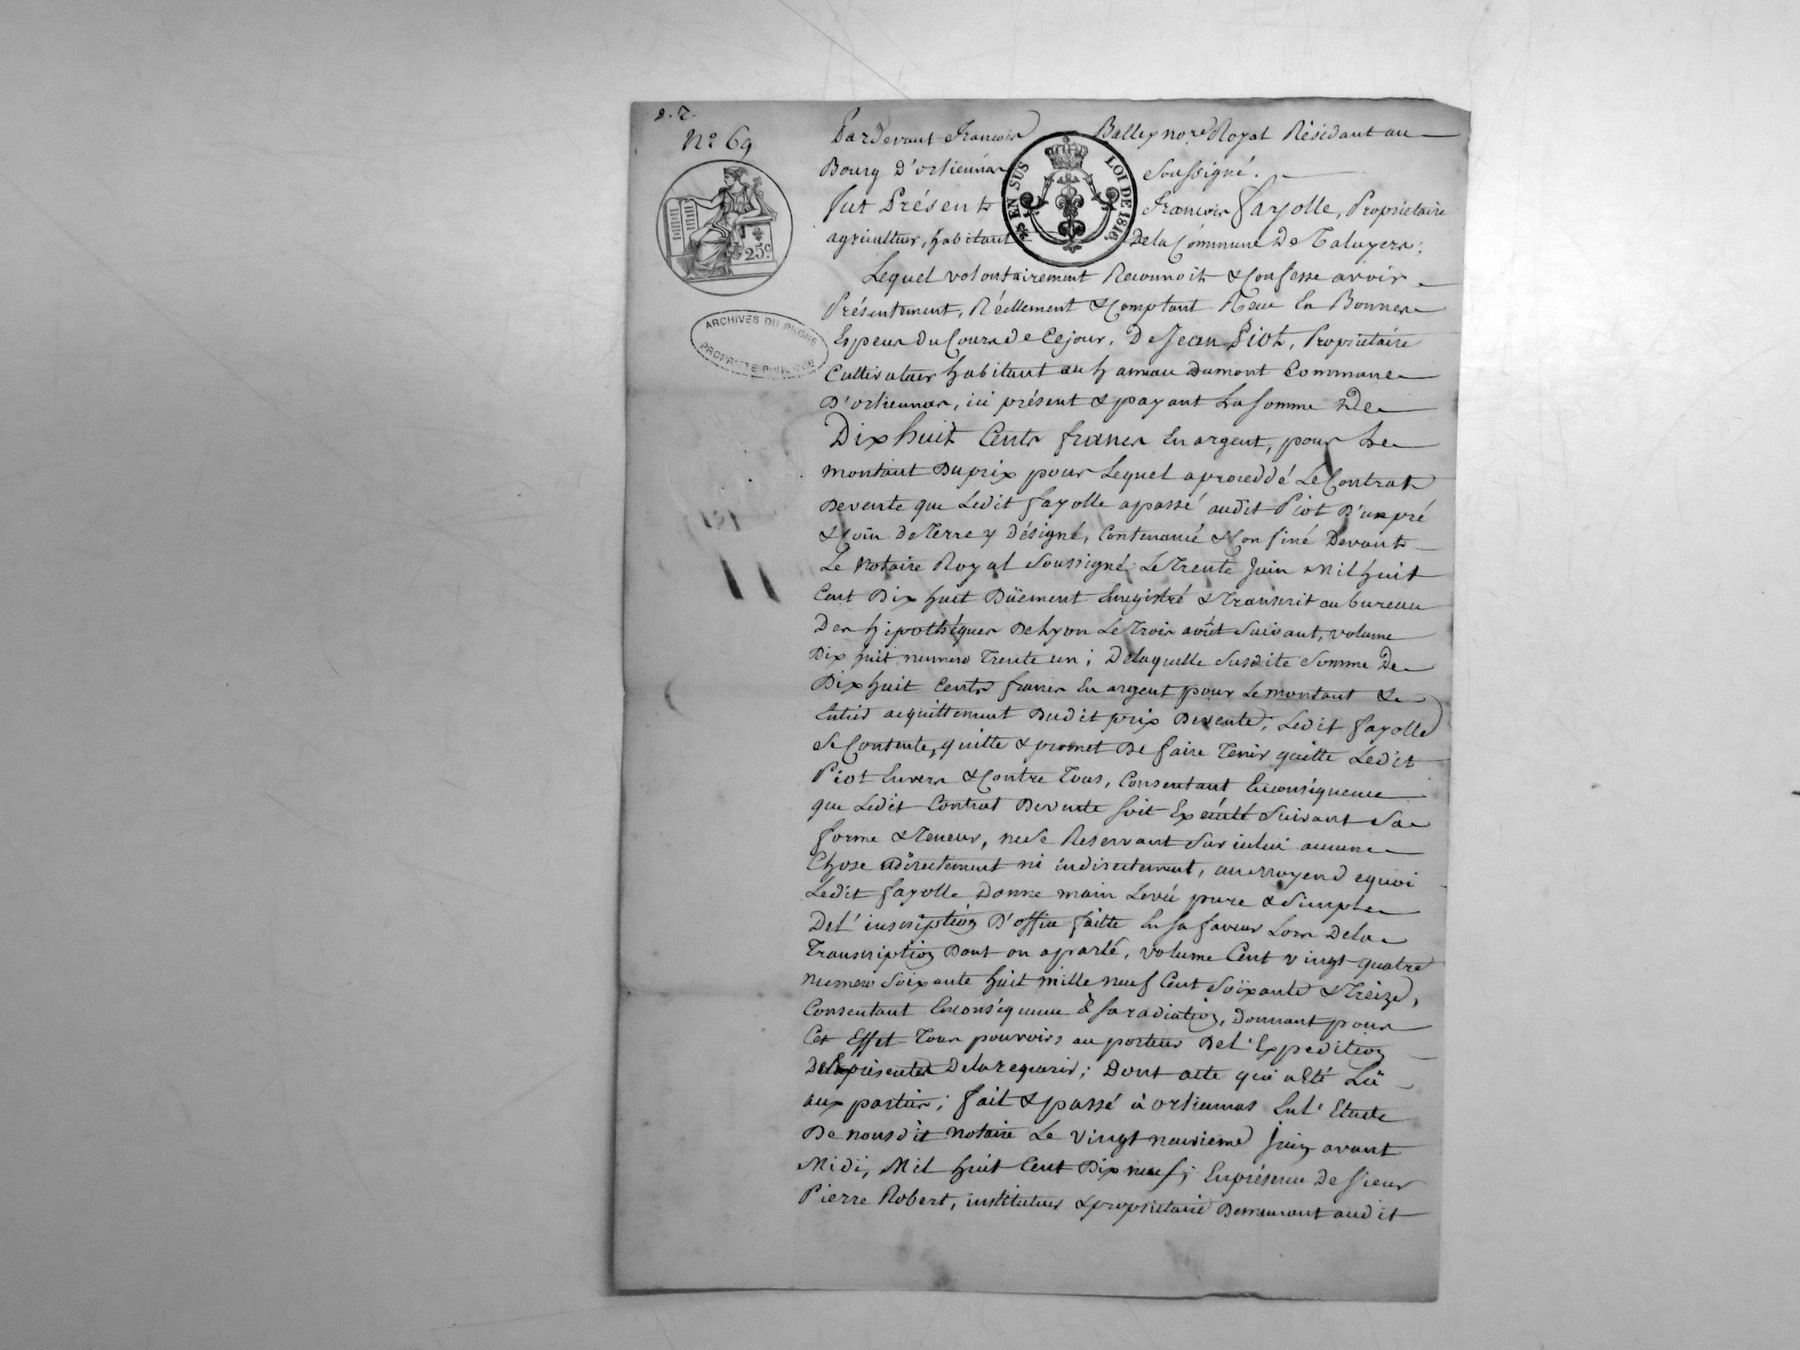 N° 69
25c.
25 EN SUS
LOI DE 1816.
ARCHIVES DU RHONE
PROPRIETE PUBLIQUE
Pardevant François Balley nore. Royal Résidant au
Bourg D'orliennas soussigné.
fut Présent françois fayolle, Propriétaire
agriculteur, habitant De la Commune De Taluyers;
Lequel volontairement Reconnoit & Confesse avoir
Présentement, Réellement & Comptant Reçu En Bonnes
Especes du Cours de Cejour, De Jean Piot, Propriétaire
Cultivateur habitant au hameau Dumont Commune
D'orliennas, ici présent & payant La somme De
Dix huit Cents francs En argent, pour Le
montant Du prix pour Lequel a procédé Le Contrat
De vente que Ledit fayolle a passé audit Piot D'un pré
& Coin de Terre y désigné, Contenancé & Confiné Devant
Le Notaire Royal Soussigné Le Trente Juin Mil huit
Cent Dix huit Düement Enregistré & Transcrit au bureau
Des hipothéques De Lyon Le Trois août Suivant, volume
Dix huit numero Trente un; De laquelle Susdite Somme De
Dix huit Cents francs En argent pour Le montant &
Entier acquittement Dudit prix De vente, Ledit fayolle
se Contente, quitte & promet De faire Tenir quitte Ledit
Piot Envers & Contre Tous, Consentant En conséquence
que Ledit Contrat De vente soit Exécuté Suivant Sa
forme & Teneur, ne se Reservant Sur icelui aucune
Chose directement ni indirectement, au moyen de quoi
Ledit fayolle Donne main Levée pure & Simple
De L'inscription D'office faitte En sa faveur Lors De la
Transcription Dont on a parlé, volume Cent vingt quatre
numero Soixante huit mille neuf Cent Soixante & Treize,
Consentant En conséquence à sa radiation, Donnant pour
Cet Effet Tous pouvoirs au porteur De L'Expedition
Des présentes De La requerir; Dont acte qui a Eté Lu
aux parties; fait & passé à orliennas En L'Etude
De nousdit Notaire Le vingt neuvieme Juin avant
Midi, Mil huit Cent Dix neuf; En présence De sieur
Pierre Robert, instituteur & propriétaire Demeurant audit